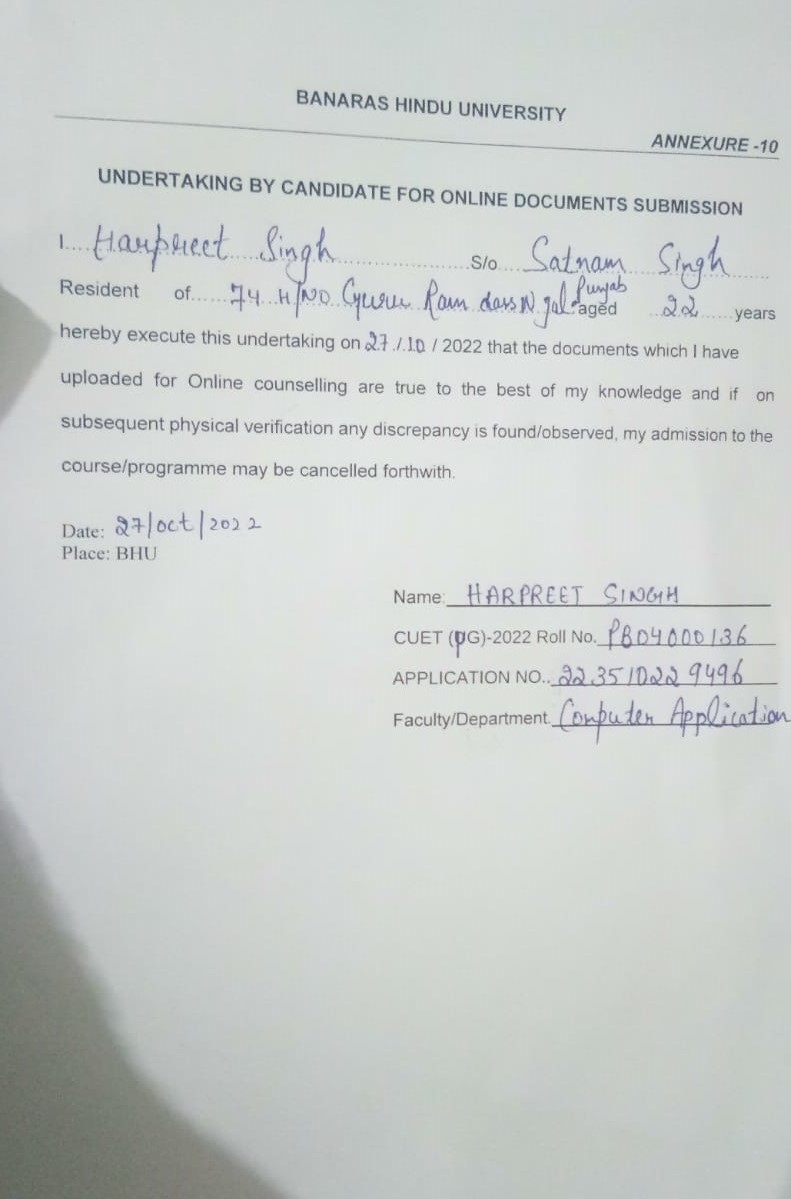 BANARAS HINDU UNIVERSITY
ANNEXURE -10
UNDERTAKING BY CANDIDATE FOR ONLINE DOCUMENTS SUBMISSION
I.... Harpreet Singh ........................ S/o .... Satnam Singh ......
Resident of....... 74 H/NO Guru Ram dass N gal Punjab aged ...22...... years
hereby execute this undertaking on 27./.10 / 2022 that the documents which I have
uploaded for Online counselling are true to the best of my knowledge and if on
subsequent physical verification any discrepancy is found/observed, my admission to the
course/programme may be cancelled forthwith.
Date: 27/oct/2022
Place: BHU
Name: HARPREET SINGH
CUET (PG)-2022 Roll No. PB04000136
APPLICATION NO.. 223510229496
Faculty/Department. Computer Application